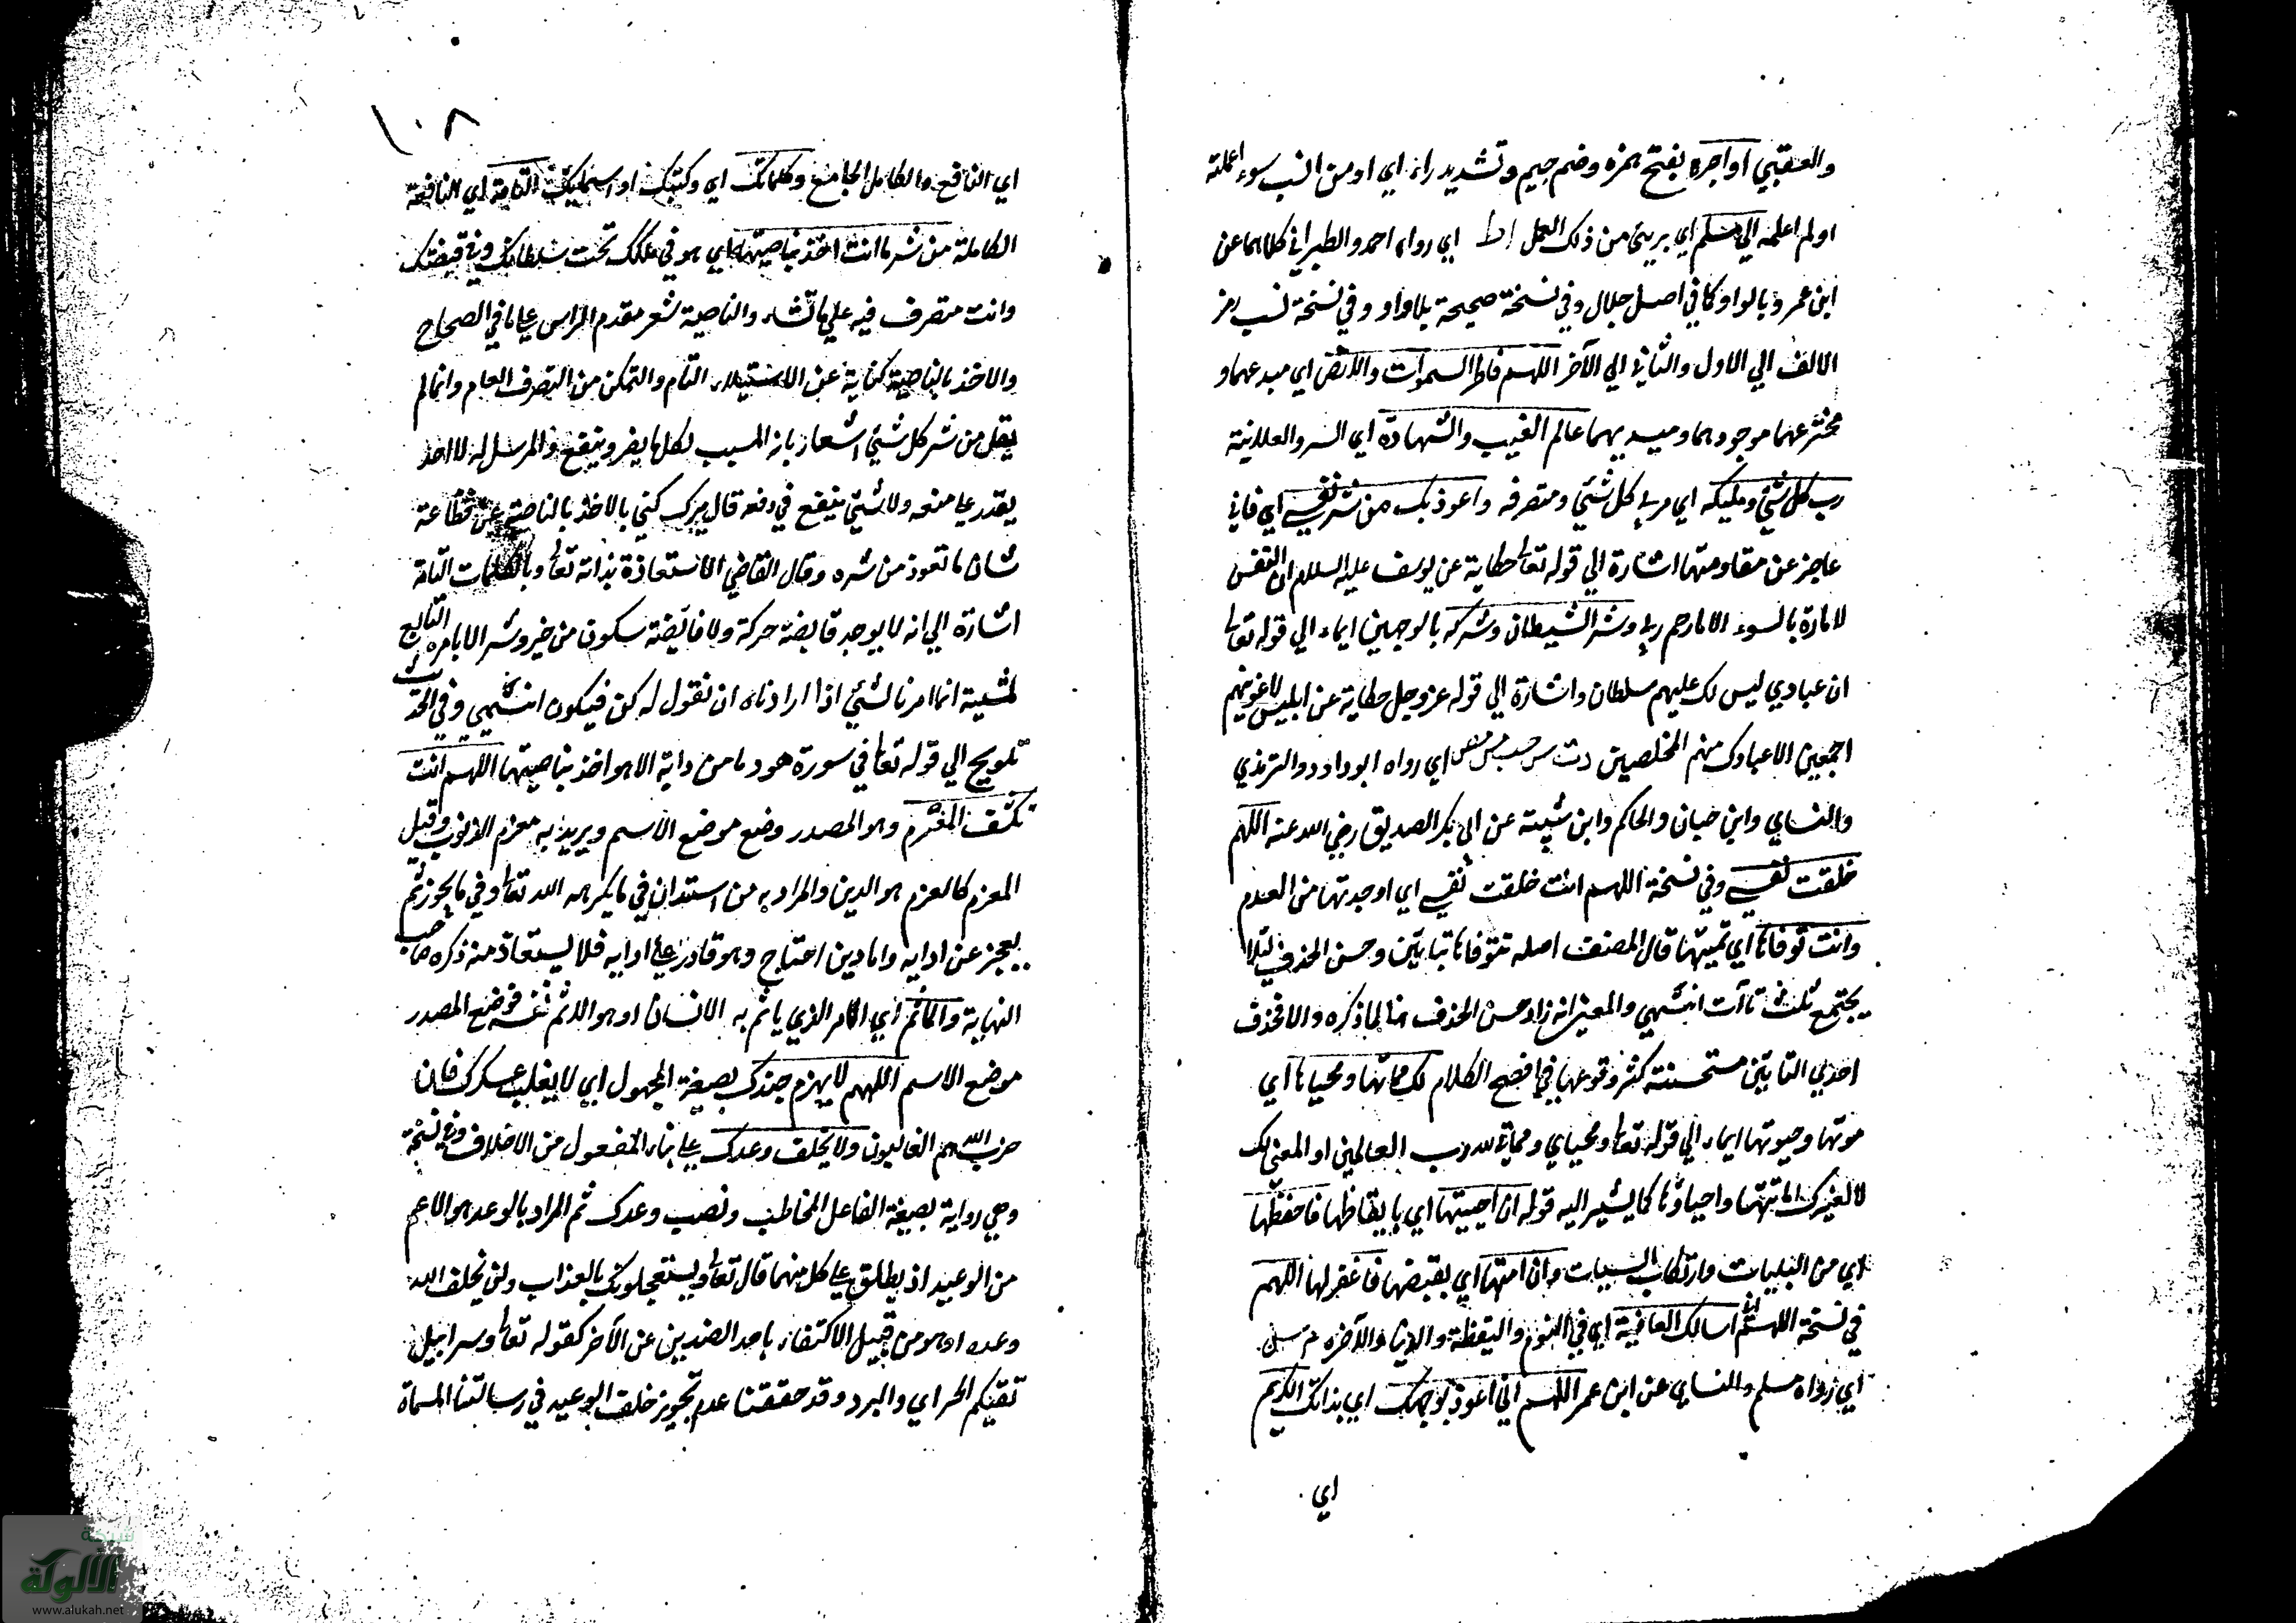 والعقبي او اجره بفتح همزه وضم جيم وتشديد راء اي اومن انسب سوء اعملته
اولم اعلمه الي مسلم اي بريئ من ذلك العمل اط اي رواه احمد والطبراني كلاهما عن
ابن عمرو بالواو كما في اصل جلال وفي نسخة صحيحة بلا واو وفي نسخة نسب رمز
الالف الي الاول والثاني الي الآخر اللهم فاطر السموات والارض اي مبدعهما و
مخترعهما موجودهما ومبديهما عالم الغيب والشهادة اي السر والعلانية
رب كل شئي ومليكه اي مربي كل شئي ومتصرفه واعوذ بك من شر نفسي اي فاني
عاجز عن مقاومتها اشارة الي قوله تعالي حكاية عن يوسف عليه السلام ان النفس
لامارة بالسوء الا ما رحم ربي وشر الشيطان وشركه بالوجهين ايماء الي قوله تعالي
ان عبادي ليس لك عليهم سلطان واشارة الي قوله عز وجل حكاية عن ابليس لاغوينهم
اجمعين الا عبادك منهم المخلصين دت س حب مس مص اي رواه ابو داود والترمذي
والنسايي وابن حبان والحاكم وابن شيبة عن ابي بكر الصديق رضي الله عنه اللهم
خلقت نفسي وفي نسخة اللهم انت خلقت نفسي اي اوجدتها من العدم
وانت توفاها اي تميتها قال المصنف اصله تتوفاها بتايين وحسن الحذف لئلا
يجتمع ثلث تاآت انتهي والمعني انه زاد حسن الحذف هنا لما ذكره والا فحذف
احدي التايين مستحسنة كثر وقوعها في افصح الكلام لك مماتها ومحياها اي
موتها وحيوتها ايماء الي قوله تعالي ومحياي ومماتي لله رب العالمين او المعني لك
لا لغيرك اماتتها واحياؤها كما يشير اليه قوله ان احييتها اي بايقاظها فاحفظها
اي من البليات وارتكاب السييات وان امتها اي بقبضها فاغفر لها اللهم
في نسخة اللهم اني اسالك العافية اي في النوم واليقظة والدنيا والآخره م س
اي رواه مسلم والنسايي عن ابن عمر اللهم اني اعوذ بوجهك اي بذاتك الكريم
اي
١٠٨
اي النافع والكامل الجامع وكلماتك اي وكتبك او اسمايك التامة اي النافعة
الكاملة من شر ما انت اخذ بناصيتها اي هو في ملكك تحت سلطانك وفي قبضتك
وانت متصرف فيه علي ما تشاء والناصية شعر مقدم الراس علي ما في الصحاح
والاخذ بالناصية كناية عن الاستيلاء التام والتمكن من التصرف العام وانما لم
يقل من شر كل شئي اشعار بانه المسبب لكل ما يضر وينفع والمرسل له لا احد
يقدر علي منعه ولا شئي ينفع في دفعه قال ميرك كني بالاخذ بالناصية عن فظاعة
شان ما تعوذ من شره وقال القاضي الاستعاذة بذاته تعالي وبالكلمات التامة
اشارة الي انه لا يوجد قابضة حركة ولا قابضة سكون من خير وشر الا بامره التابع
لمشيته انما امرنا لشئي اذا اردناه ان نقول له كن فيكون انتهي وفي الحديث
تلويح الي قوله تعالي في سورة هود ما من دابة الا هو اخذ بناصيتها اللهم انت
تكشف المغرم وهو المصدر وضع موضع الاسم ويريد به مغرم الذنوب وقيل
المغرم كالغرم هو الدين والمراد به من استدان في ما يكرهه الله تعالي وفي ما يجوز ثم
يعجز عن ادايه واما دين احتاج وهو قادر علي ادايه فلا يستعاذ منه ذكره صاحب
النهاية والماثم اي الامر الذي ياثم به الانسان او هو الاثم نفسه فوضع المصدر
موضع الاسم اللهم لا يهزم جندك بصيغة المجهول اي لا يغلب عسكرك فان
حزب الله هم الغالبون ولا يخلف وعدك علي بناء المفعول من الاخلاف وفي نسخة
وهي رواية بصيغة الفاعل المخاطب ونصب وعدك ثم المراد بالوعد هو الاعم
من الوعيد اذ يطلق علي كل منهما قال تعالي ويستعجلونك بالعذاب ولن يخلف الله
وعده او هو من قبيل الاكتفاء باحد الضدين عن الآخر كقوله تعالي وسرابيل
تقيكم الحر اي والبرد وقد حققنا عدم تجويز خلف الوعيد في رسالتنا المسماة
شبكة
الألوكة
www.alukah.net